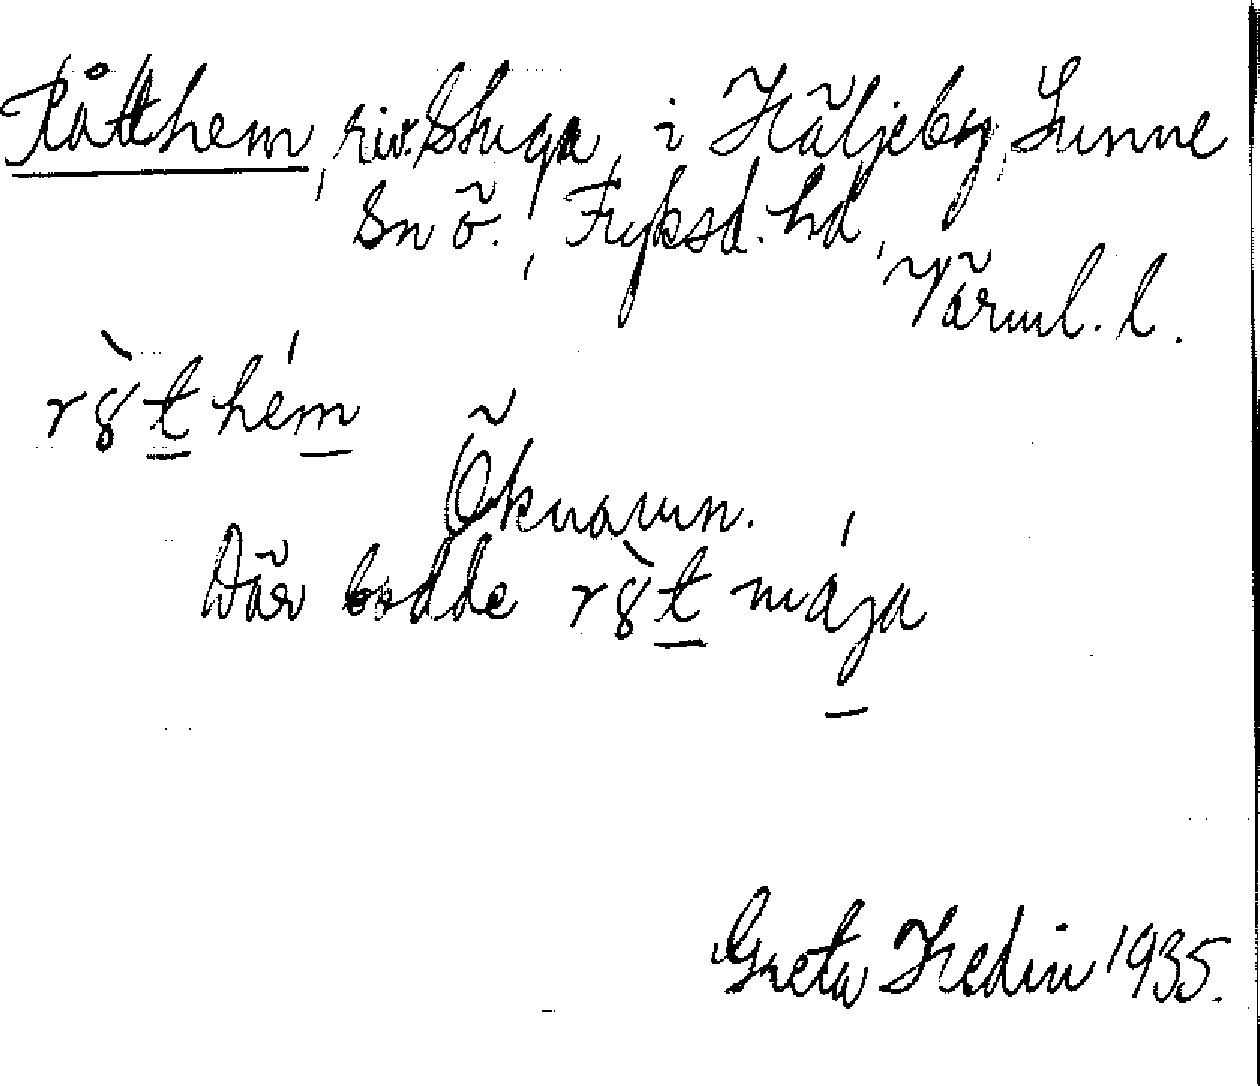 Råtthem, riv. Stuga, i Häljeby, Sunne
Sn ö., Fryksd. hd,
Värml. l.
rȣ̀t hém
Öknamn.
Där bodde rȣ̀t mája
Greta Hedin 1935.